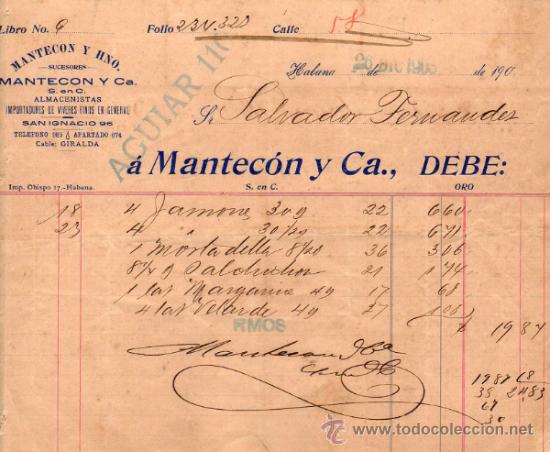 Libro No. 9 Folio 234.320 Calle 58
MANTECON Y HNO.
SUCESORES
MANTECON Y Ca.
S. en C.
ALMACENISTAS
IMPORTADORES DE VIVERES FINOS EN GENERAL
SAN IGNACIO 96
APARTADO 674
Cable: GIRALDA
AGUIAR 110
Habana de de 190
Sr. Salvador Fernandez
á Mantecón y Ca., DEBE:
Imp. Obispo 17.-Habana. S. en C. ORO
18 4 Jamone 30 9 22 6 60
23 4 " 30 1/2 9 22 6 71
1 Mortadella 36 3 06
Salchichon 21 1 74
1 lat 4 9 17 68
4 lat Velarde 4 9 27
19 87
RMOS
Mantecon y Ca
S en C
19 87 68
35 24 83
67
30
www.todocoleccion.net
todocoleccion